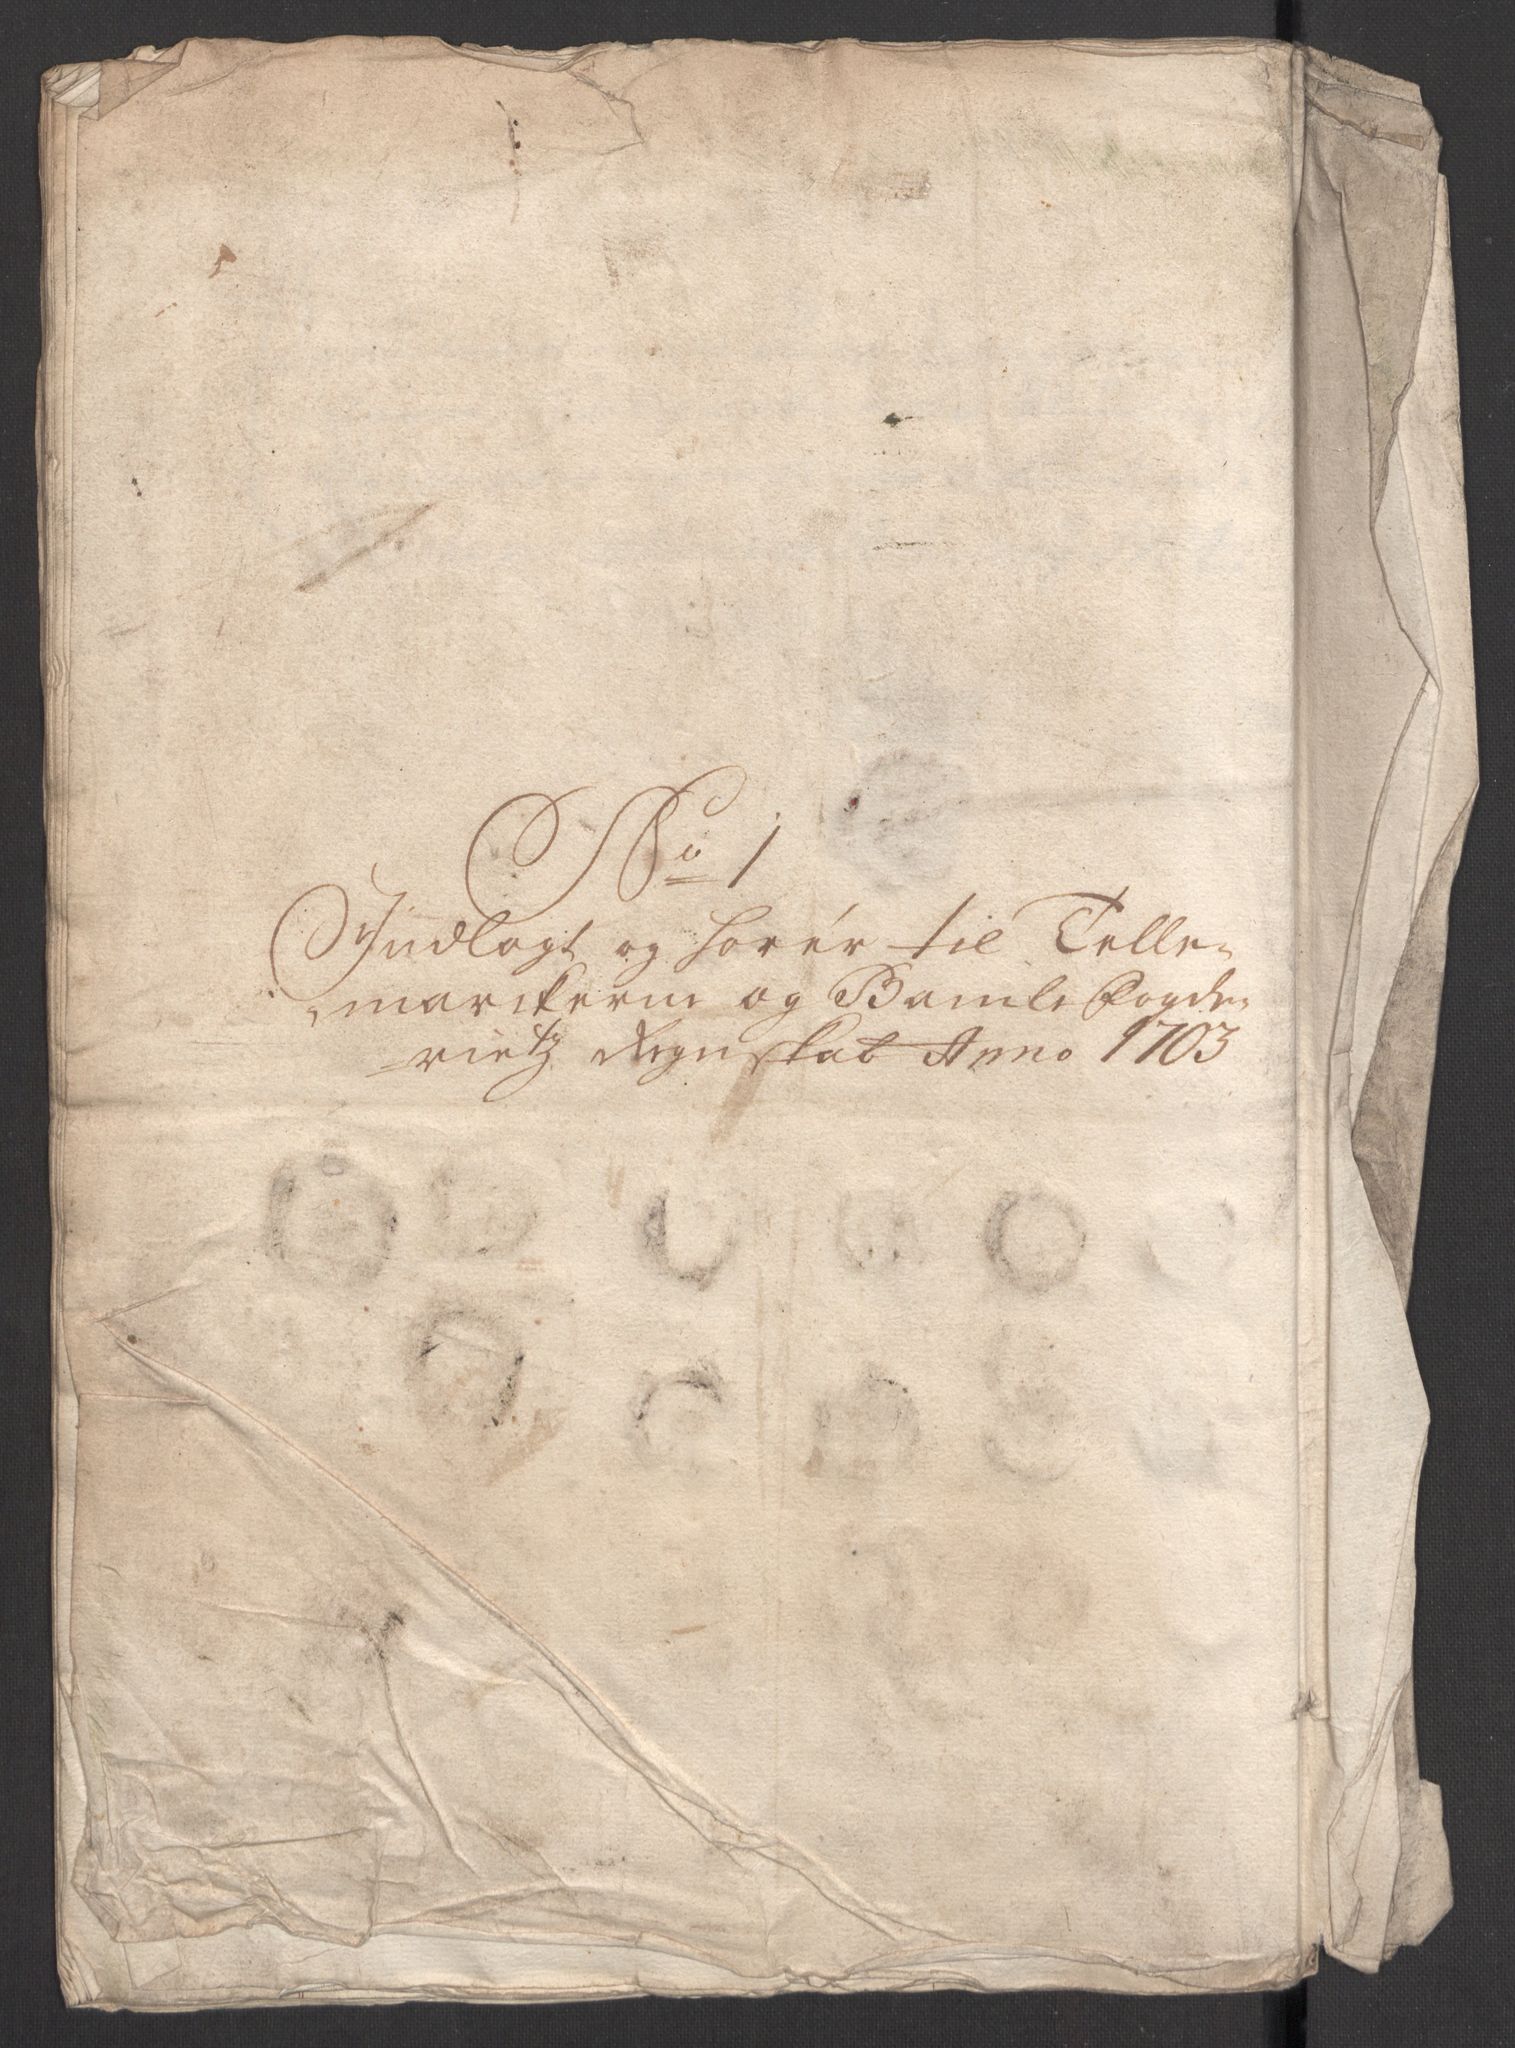 No 1
Indlagt og hører til Telle-
marckerne og Bamle Fogde-
rietz Regnskab Anno 1703